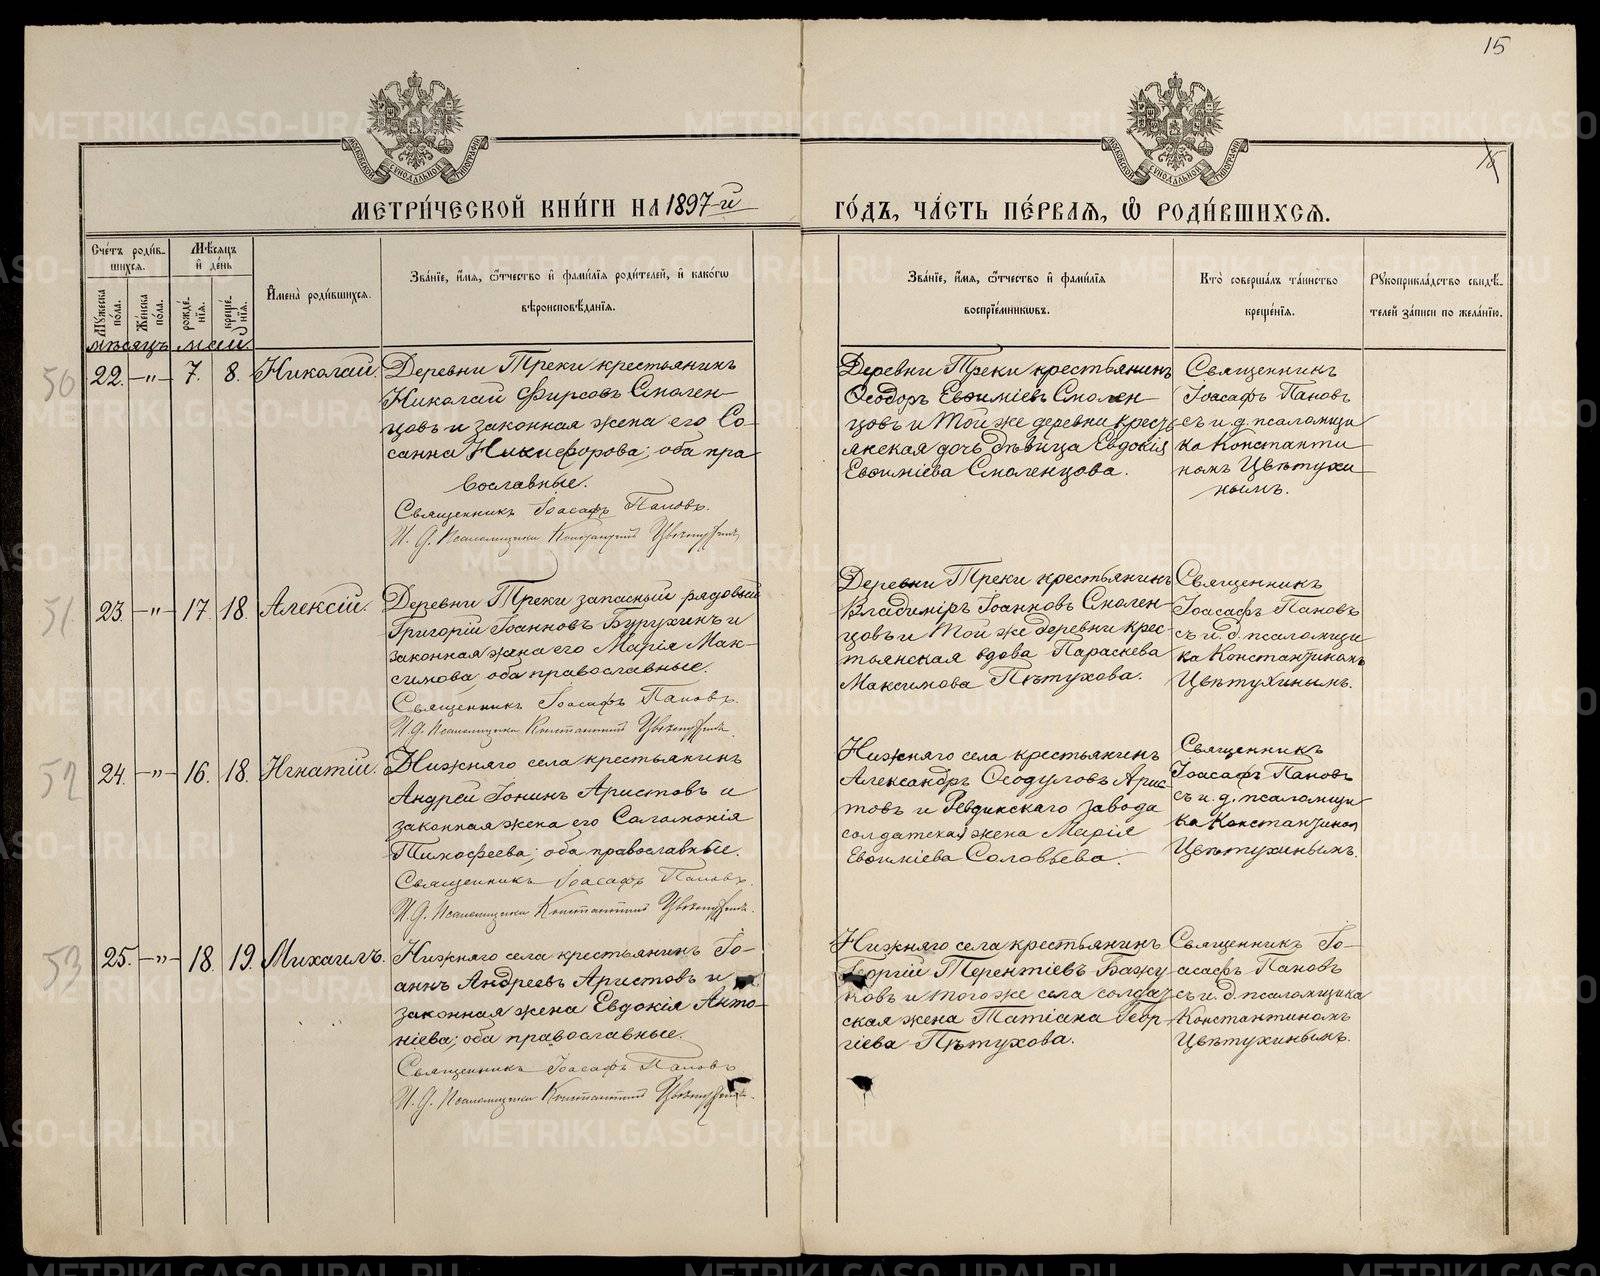 15
МЕТРИ́ЧЕСКОЙ КНИ́ГИ НА 1897-й
ГО́ДЪ, ЧА́СТЬ ПЕ́РВАѦ, Ѡ҆ РОДИ́ВШИХСѦ.
Сче́тъ роди́в-
шихсѧ.
Мꙋ́жеска
по́ла.
Же́нска
по́ла.
Мѣ́сѧцъ
и҆ де́нь
рожде́-
нїѧ.
креще́-
нїѧ.
И҆мена̀ роди́вшихсѧ.
Зва́нїе, и҆́мѧ, ѻ҆́тчество и҆ фами́лїѧ роди́телей, и҆ како́гѡ
вѣроисповѣ́данїѧ.
Зва́нїе, и҆́мѧ, ѻ҆́тчество и҆ фами́лїѧ
воспрїе́мникѡвъ.
Кто̀ соверша́лъ та́инство
креще́нїѧ.
Рꙋкоприкла́дство свидѣ́-
телей за́писи по жела́нїю.
мѣсяцъ май.
50
22. —"— 7. 8. Николай.
Деревни Треки крестьянинъ
Николай Фирсовъ Смолен-
цовъ и законная жена его Со-
санна Никифорова; оба пра
вославные.
Священникъ Іоасафъ Пановъ.
И. д. Псаломщика Константинъ Цвѣтухинъ.
Деревни Треки крестьянинъ
Ѳеодоръ Евѳиміевъ Смолен-
цовъ и той же деревни кресть-
янская дочь дѣвица Евдокія
Евѳиміева Смоленцова.
Священникъ
Іоасафъ Пановъ
съ и. д. псаломщи
ка Константи
номъ Цвѣтухи
нымъ.
51
23. —"— 17 18. Алексій.
Деревни Треки запасный рядовый
Григорій Іоанновъ Бурухинъ и
законная жена его Марія Мак-
симова; оба православные.
Священникъ Іоасафъ Пановъ.
И. д. Псаломщика Константинъ Цвѣтухинъ.
Деревни Треки крестьянинъ
Владиміръ Іоанновъ Смолен-
цовъ и той же деревни крес-
тьянская вдова Параскева
Максимова Пѣтухова.
Священникъ
Іоасафъ Пановъ
съ и. д. псаломщи
ка Константиномъ
Цвѣтухинымъ.
52
24. —"— 16. 18. Игнатій.
Нижняго села крестьянинъ
Андрей Іонинъ Аристовъ и
законная жена его Соломонія
Тимофеева; оба православные.
Священникъ Іоасафъ Пановъ.
И. д. Псаломщика Константинъ Цвѣтухинъ.
Нижняго села крестьянинъ
Александръ Ѳеодуловъ Арис-
товъ и Ревдинскаго завода
солдатская жена Марія
Евѳиміева Соловьева.
Священникъ
Іоасафъ Пановъ
съ и. д. псаломщи
ка Константином
Цвѣтухинымъ.
53
25. —"— 18. 19. Михаилъ.
Нижняго села крестьянинъ Іо-
аннъ Андреевъ Аристовъ и
законная жена Евдокія Анто-
ніева; оба православные.
Священникъ Іоасафъ Пановъ
И. д. Псаломщика Константинъ Цвѣтухинъ.
Нижняго села крестьянинъ
Георгій Терентіевъ Бажу
ковъ и того же села солдат-
ская жена Татіана Геор-
гіева Пѣтухова.
Священникъ Іо-
асафъ Пановъ
съ и. д. псаломщика
Константиномъ
Цвѣтухинымъ.
METRIKI.GASO-URAL.RU